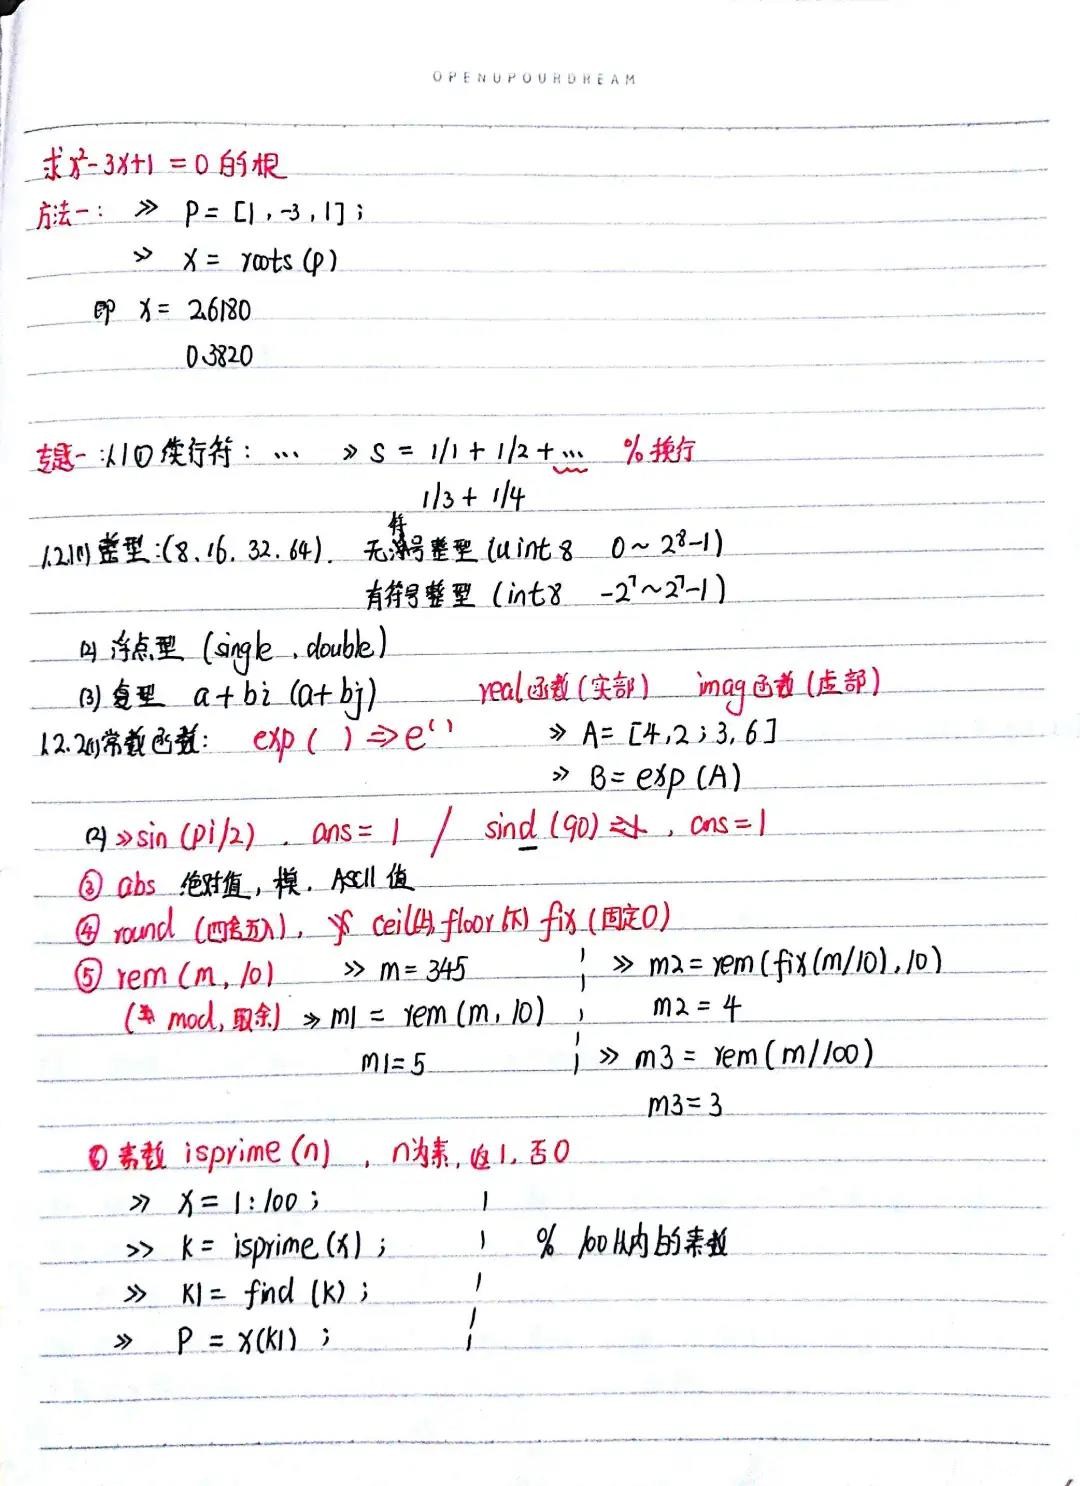 OPENUPOURDREAM
求x²-3x+1=0的根
方法一: >> P=[1,-3,1];
>> x= roots(p)
即 x= 2.6180
0.3820
专题一:1.1① 续行符: ... >> S = 1/1 + 1/2 + ... % 换行
1/3 + 1/4
1.2.1(1) 整型:(8、16、32、64). 无符号整型 (uint8 0~2⁸-1)
有符号整型 (int8 -2⁷~2⁷-1)
(2) 浮点型 (single、double)
(3) 复型 a+bi (a+bj) real函数(实部) imag函数(虚部)
1.2.2(1)常数函数: exp( )⇒e⁽⁾ >> A=[4,2;3,6]
>> B=exp(A)
(2) >>sin(pi/2). ans=1 / sind(90), ans=1
③ abs 绝对值,模. ASCII值
④ round (四舍五入), ceil(上) floor(下) fix(固定0)
⑤ rem(m,10) >> m=345 >> m2=rem(fix(m/10),10)
(mod,取余) >> m1 = rem(m,10) m2=4
m1=5 >> m3 = rem(m/100)
m3=3
素数 isprime(n), n为素,返1,否0
>> x=1:100;
>> K= isprime(x); % 100以内的素数
>> K1= find(K);
>> P = x(K1);